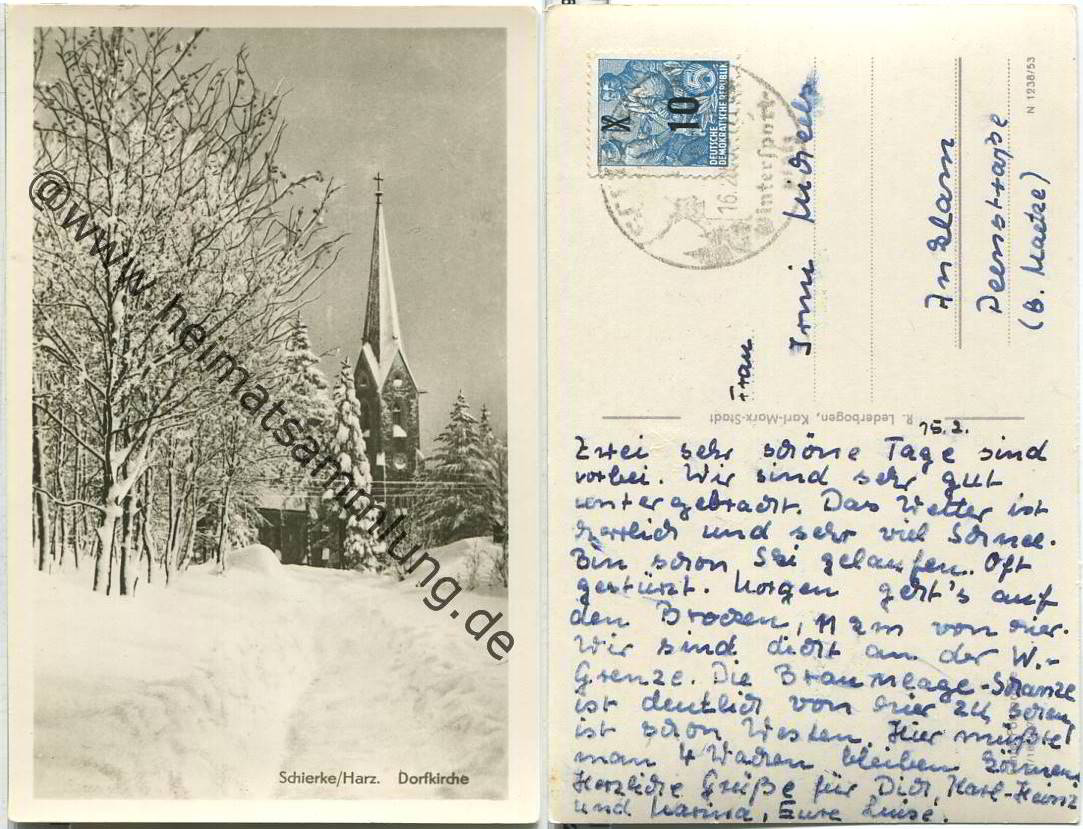 @www.heimatsammlung.de
Schierke/Harz. Dorfkirche
10
DEUTSCHE
DEMOKRATISCHE REPUBLIK
16.2
Wintersport
N 1238/53
Frau
Irmi
Anklam
Peenstraße
(b. Maetze)
R. Lederbogen, Karl-Marx-Stadt
15.2.
Zwei sehr schöne Tage sind
vorbei. Wir sind sehr gut
untergebracht. Das Wetter ist
herrlich und sehr viel Schnee.
Bin schon Ski gelaufen. Oft
gestürzt. Morgen geht's auf
den Brocken, 11 km von hier.
Wir sind dicht an der W.-
Grenze. Die Braunlage-Schanze
ist deutlich von hier zu sehen,
ist schon Westen. Hier müßte
man 4 Wochen bleiben können.
Herzliche Grüße für Dich, Karl-Heinz
und Marina, Eure Luise.